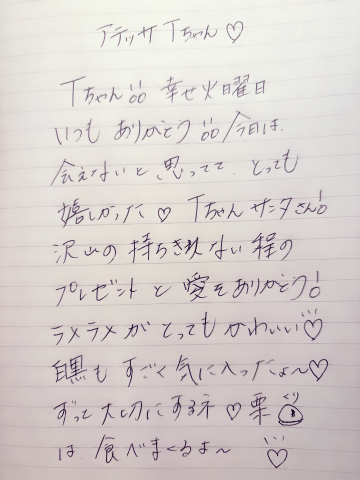 アテッサTちゃん♡
Tちゃん!! 幸せ火曜日
いつも ありがとう!! 今日は、
会えないと思ってて、とっても
嬉しかった♡ Tちゃんサンタさん!
沢山の持ちきれない程の
プレゼントと愛をありがとう!
ラメラメがとってもかわいい♡
白黒もすごく気に入ったよ〜♡
ずっと大切にするネ♡栗 くり
は 食べまくるよ〜 ♡